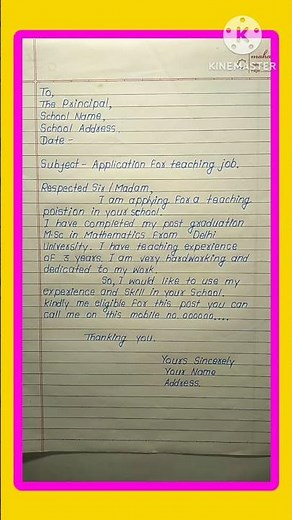 KINEMASTER
To,
The Principal,
School Name,
School Address.
Date -
Subject - Application for teaching job.
Respected Sir / Madam,
I am applying for a teaching
poistion in your school.
I have completed my post graduation
M.Sc in Mathematics Exam Delhi
University. I have teaching experience
of 3 years. I am very hardworking and
dedicated to my work.
So, I would like to use my
experience and skill in your School.
kindly me eligible for this post you can
call me on this mobile no. 000000....
Thanking you.
Yours Sincerely
Your Name
Address.